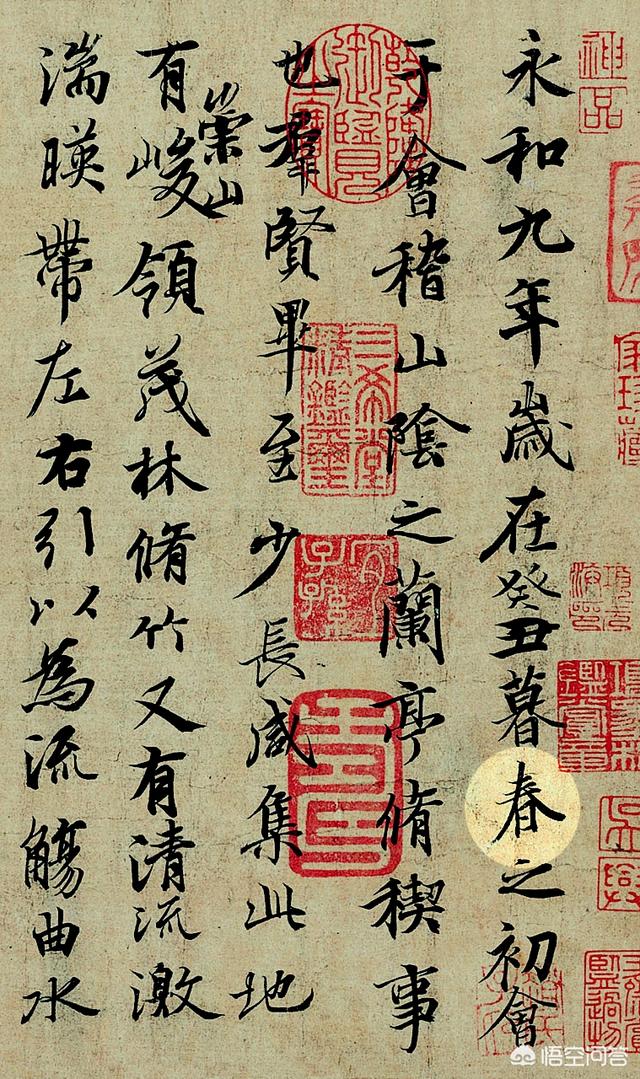 神品
永和九年歲在癸丑暮春之初會
于會稽山陰之蘭亭脩稧事
也羣賢畢至少長咸集此地
有崇山峻領茂林脩竹又有清流激
湍暎帶左右引以為流觴曲水
三希堂精鑑璽
宜子孫
悟空问答